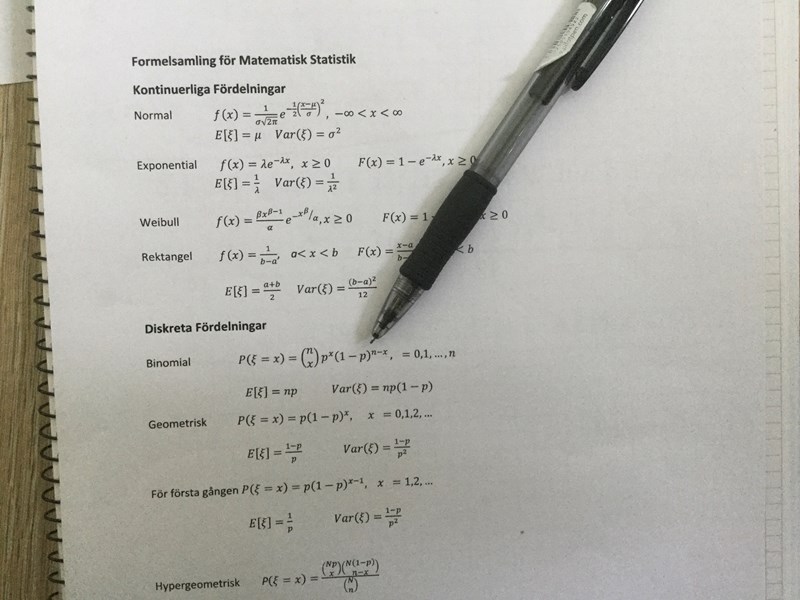 Formelsamling för Matematisk Statistik
Kontinuerliga Fördelningar
Normal f(x) = \frac{1}{σ\sqrt{2π}} e^{-\frac{1}{2}(\frac{x-μ}{σ})^2}, −∞ < x < ∞
E[ξ] = μ Var(ξ) = σ²
Exponential f(x) = λe^{−λx}, x ≥ 0 F(x) = 1 − e^{−λx}, x ≥ 0
E[ξ] = \frac{1}{λ} Var(ξ) = \frac{1}{λ²}
Weibull f(x) = \frac{βx^{β−1}}{α} e^{−x^β/α}, x ≥ 0 F(x) = 1 x ≥ 0
Rektangel f(x) = \frac{1}{b−a}, a< x < b F(x) = \frac{x−a}{b−} < b
E[ξ] = \frac{a+b}{2} Var(ξ) = \frac{(b−a)²}{12}
Diskreta Fördelningar
Binomial P(ξ = x) = \binom{n}{x} p^x (1 − p)^{n−x}, = 0,1, ..., n
E[ξ] = np Var(ξ) = np(1 − p)
Geometrisk P(ξ = x) = p(1 − p)^x, x = 0,1,2, ...
E[ξ] = \frac{1−p}{p} Var(ξ) = \frac{1−p}{p²}
För första gången P(ξ = x) = p(1 − p)^{x−1}, x = 1,2, ...
E[ξ] = \frac{1}{p} Var(ξ) = \frac{1−p}{p²}
Hypergeometrisk P(ξ = x) = \frac{\binom{Np}{x}\binom{N(1−p)}{n−x}}{\binom{N}{n}}